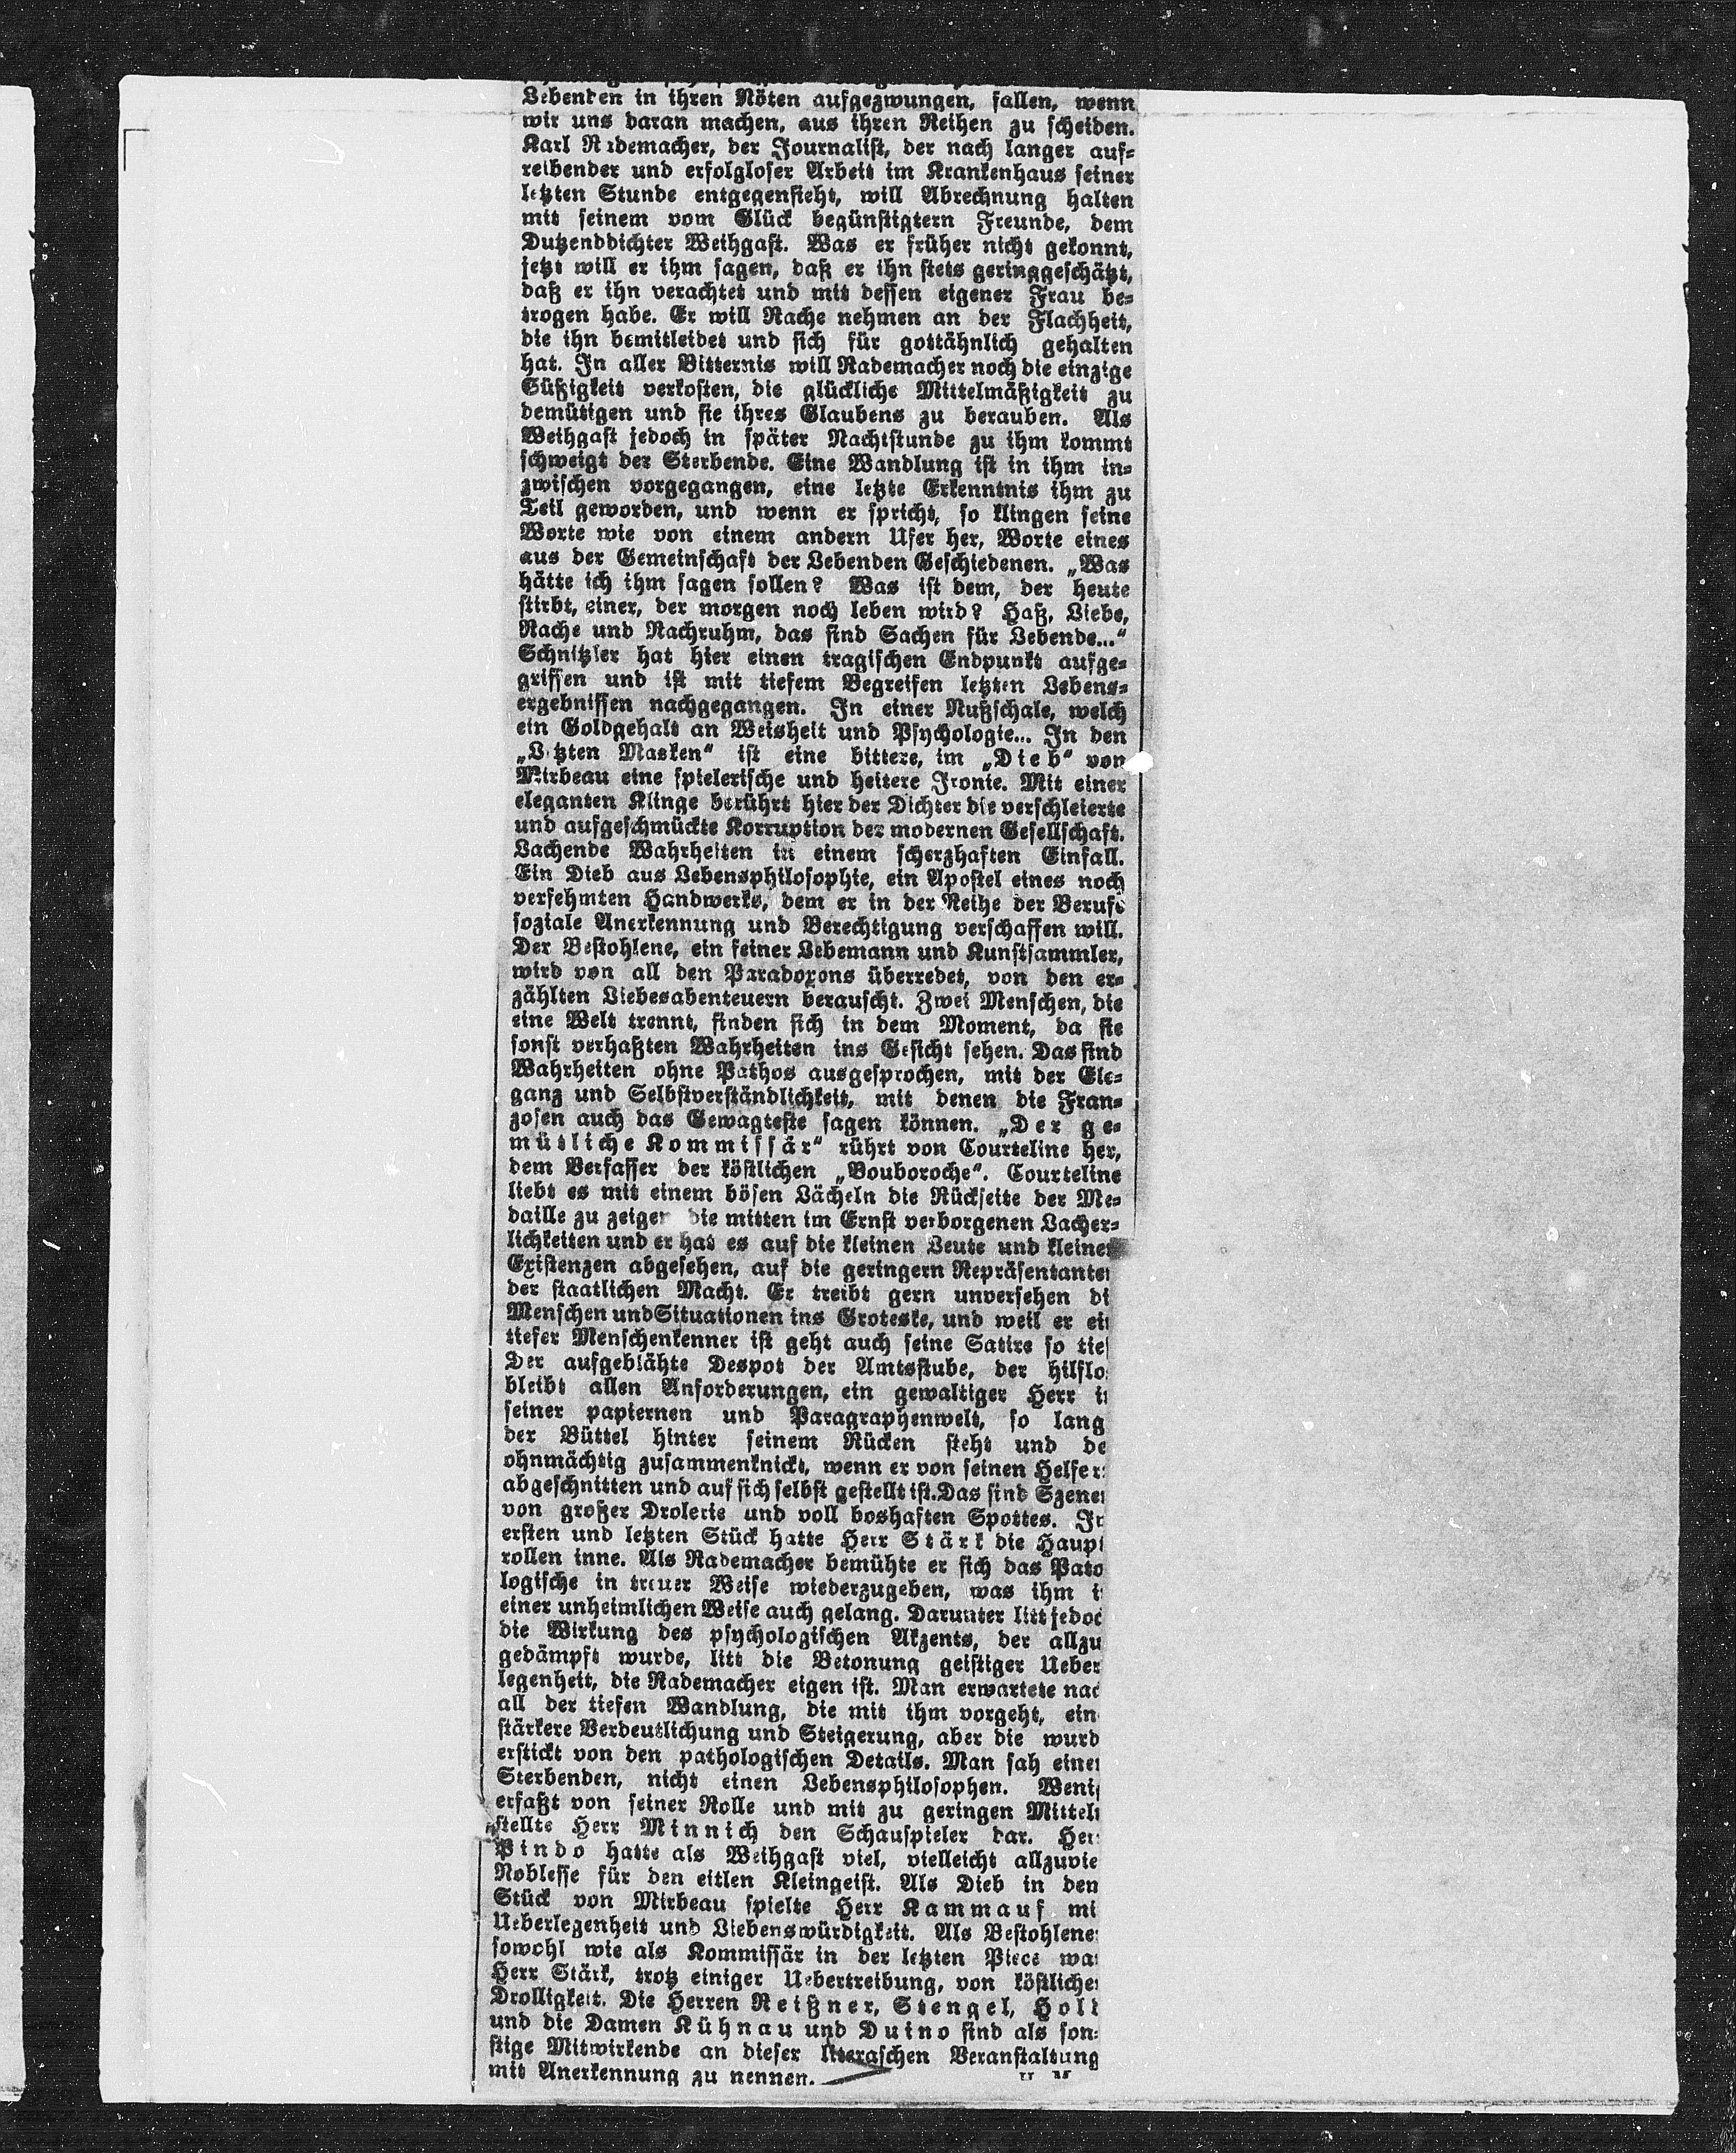 Lebenden in ihren Nöten aufgezwungen, fallen, wenn
wir uns daran machen, aus ihren Reihen zu scheiden.
Karl Rademacher, der Journalist, der nach langer auf-
reibender und erfolgloser Arbeit im Krankenhaus seiner
letzten Stunde entgegensieht, will Abrechnung halten
mit seinem vom Glück begünstigtern Freunde, dem
Dutzenddichter Weihgast. Was er früher nicht gekonnt,
jetzt will er ihm sagen, daß er ihn stets geringgeschätzt,
daß er ihn verachtet und mit dessen eigener Frau be-
trogen habe. Er will Rache nehmen an der Flachheit,
die ihn bemitleidet und sich für gottähnlich gehalten
hat. In aller Bitternis will Rademacher noch die einzige
Süßigkeit verkosten, die glückliche Mittelmäßigkeit zu
demütigen und sie ihres Glaubens zu berauben. Als
Weihgast jedoch in später Nachtstunde zu ihm kommt
schweigt der Sterbende. Eine Wandlung ist in ihm in-
zwischen vorgegangen, eine letzte Erkenntnis ihm zu
Teil geworden, und wenn er spricht, so klingen seine
Worte wie von einem andern Ufer her, Worte eines
aus der Gemeinschaft der Lebenden Geschiedenen. „Was
hätte ich ihm sagen sollen? Was ist dem, der heute
stirbt, einer, der morgen noch leben wird? Haß, Liebe,
Rache und Nachruhm, das sind Sachen für Lebende...“
Schnitzler hat hier einen tragischen Endpunkt aufge-
griffen und ist mit tiefem Begreifen letzten Lebens-
ergebnissen nachgegangen. In einer Nußschale, welch
ein Goldgehalt an Weisheit und Psychologie... In den
„Letzten Masken“ ist eine bittere, im „Dieb“ von
Mirbeau eine spielerische und heitere Ironie. Mit einer
eleganten Klinge berührt hier der Dichter die verschleierte
und aufgeschmückte Korruption der modernen Gesellschaft.
Lachende Wahrheiten in einem scherzhaften Einfall.
Ein Dieb aus Lebensphilosophie, ein Apostel eines noch
verfehmten Handwerks, dem er in der Reihe der Berufe
soziale Anerkennung und Berechtigung verschaffen will.
Der Bestohlene, ein feiner Lebemann und Kunstsammler,
wird von all den Paradoxons überredet, von den er-
zählten Liebesabenteuern berauscht. Zwei Menschen, die
eine Welt trennt, finden sich in dem Moment, da sie
sonst verhaßten Wahrheiten ins Gesicht sehen. Das sind
Wahrheiten ohne Pathos ausgesprochen, mit der Ele-
ganz und Selbstverständlichkeit, mit denen die Fran-
zosen auch das Gewagteste sagen können. „Der ge-
mütliche Kommissär“ rührt von Courteline her,
dem Verfasser der köstlichen „Bouboroche“. Courteline
liebt es mit einem bösen Lächeln die Rückseite der Me-
daille zu zeigen die mitten im Ernst verborgenen Lächer-
lichkeiten und er hat es auf die kleinen Leute und kleinen
Existenzen abgesehen, auf die geringern Repräsentanten
der staatlichen Macht. Er treibt gern unversehen di
Menschen und Situationen ins Groteske, und weil er ein
tiefer Menschenkenner ist geht auch seine Satire so tief
Der aufgeblähte Despot der Amtsstube, der hilflo
bleibt allen Anforderungen, ein gewaltiger Herr i
seiner papiernen und Paragraphenwelt, so lang
der Büttel hinter seinem Rücken steht und de
ohnmächtig zusammenknickt, wenn er von seinen Helfer
abgeschnitten und auf sich selbst gestellt ist. Das sind Szenen
von großer Drolerie und voll boshaften Spottes. In
ersten und letzten Stück hatte Herr Stärk die Haupt
rollen inne. Als Rademacher bemühte er sich das Pato
logische in treuer Weise wiederzugeben, was ihm i
einer unheimlichen Weise auch gelang. Darunter litt jedoc
die Wirkung des psychologischen Akzents, der allzu
gedämpft wurde, litt die Betonung geistiger Ueber
legenheit, die Rademacher eigen ist. Man erwartete nac
all der tiefen Wandlung, die mit ihm vorgeht, ein
stärkere Verdeutlichung und Steigerung, aber die wurd
erstickt von den pathologischen Details. Man sah einen
Sterbenden, nicht einen Lebensphilosophen. Weni
erfaßt von seiner Rolle und mit zu geringen Mitteln
stellte Herr Minnich den Schauspieler dar. Her
Pindo hatte als Weihgast viel, vielleicht allzuvie
Noblesse für den eitlen Kleingeist. Als Dieb in den
Stück von Mirbeau spielte Herr Kammauf mi
Ueberlegenheit und Liebenswürdigkeit. Als Bestohlene
sowohl wie als Kommissär in der letzten Piece wa
Herr Stärk, trotz einiger Uebertreibung, von köstliche
Drolligkeit. Die Herren Reißner, Stengel, Holl
und die Damen Kühnau und Duino sind als son-
stige Mitwirkende an dieser literaschen Veranstaltung
mit Anerkennung zu nennen.